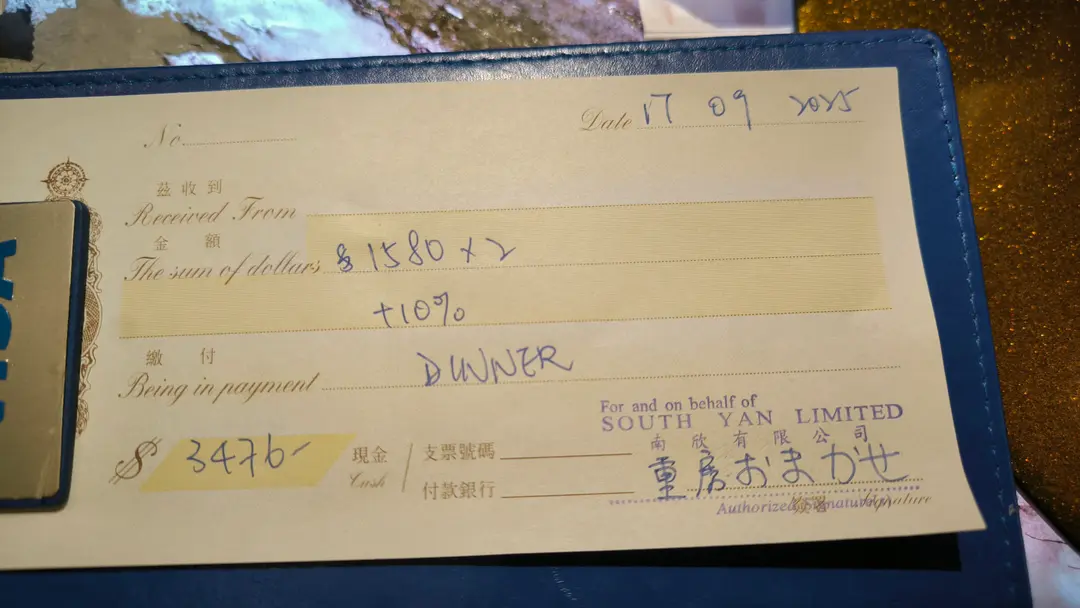 No
Date 17 09 2025
茲收到
Received From
金額
The sum of dollars $1580 x 2
+10%
繳付
Being in payment DINNER
For and on behalf of
SOUTH YAN LIMITED
南欣有限公司
$ 3476- 現金 Cash 支票號碼
付款銀行
重房おまかせ
Authorized Signature(s)
簽署 Signature